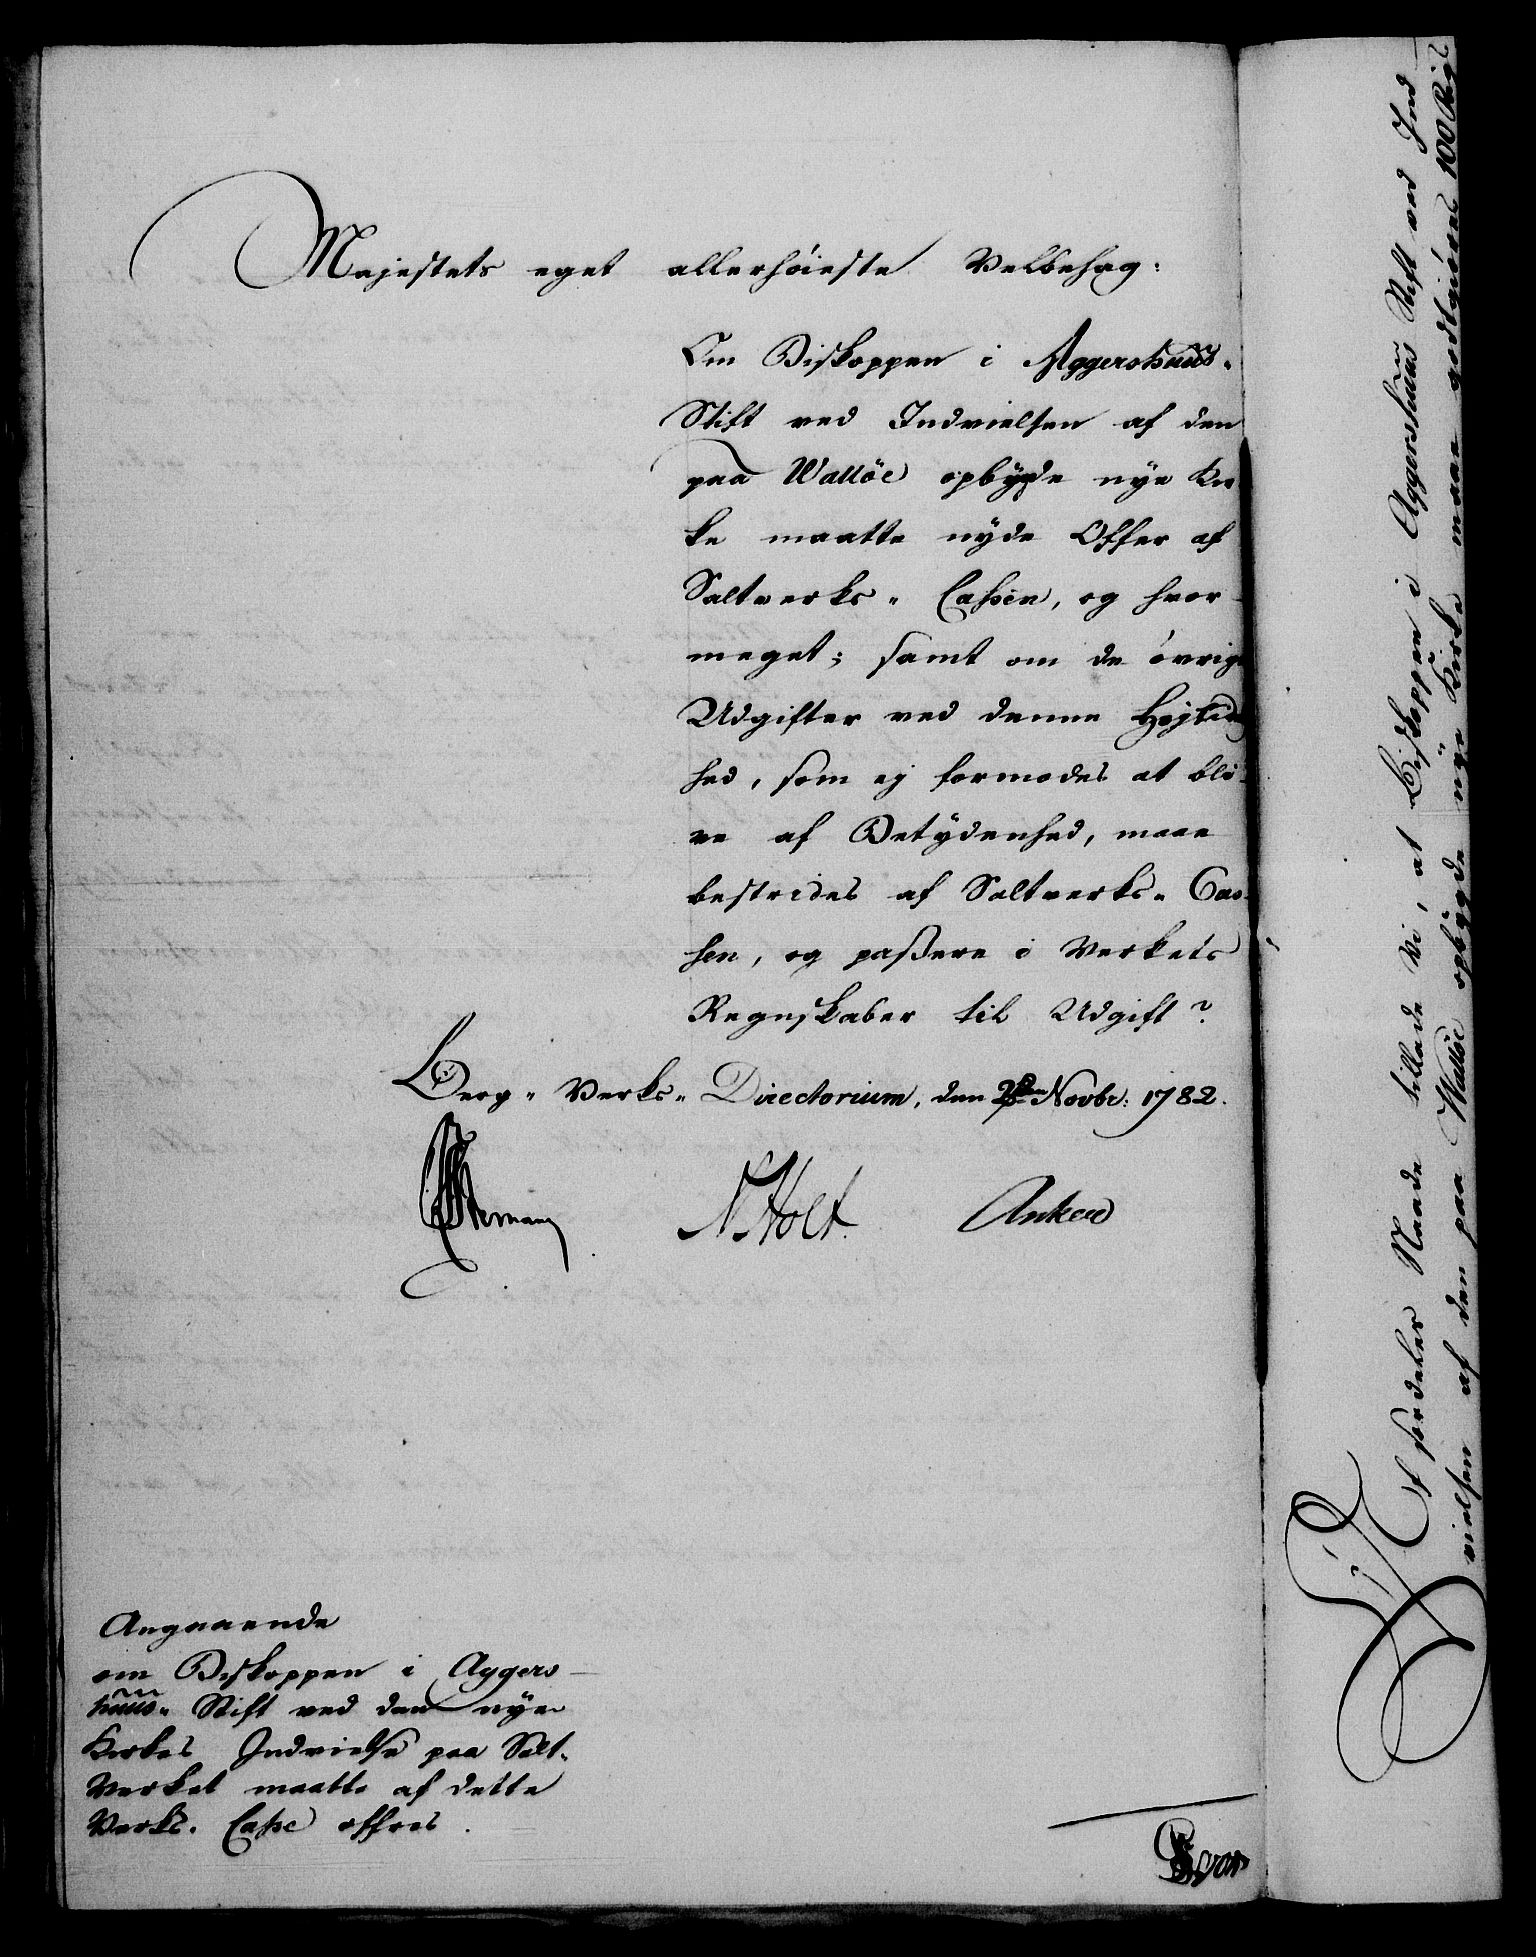 Majestets eget allerhøieste Velbehag:
Om Biskoppen i Aggershuus-
Stift ved Indvielsen af den
paa Walløe opbygde nye Kir
ke maatte nyde Offer af
Saltverks- Cassen, og hvor-
meget; samt om de øvrige
Udgifter ved denne Højtid
hed, som ej formodes at bli-
ve af Betydenhed, maae
bestrides af Saltverks- Cas-
sen, og passere i Verkets
Regnskaber til Udgift?
Berg- Verks- Directorium, den Novbr: 1782.
NHolt. Anker
Angaaende
om Biskoppen i Aggers-
huus- Stift ved den nye
Kirkes Indvielse paa Salt-
Verket maatte af dette
Verks. Casse offres.
Svar
Af særdeles Naade tillade Vi, at Biskoppen i Aggershuus Stift ved Ind
vielsen af den paa Walløe opbygde nye Kirke maae godtgiøres 100 Rigs